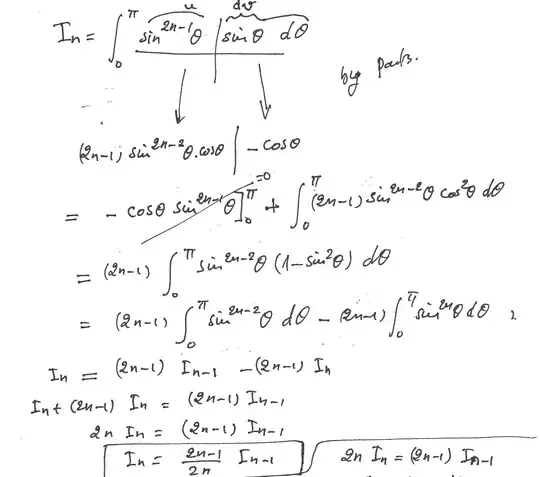 u dv
Iₙ = ∫₀^π sin²ⁿ⁻¹θ | sinθ dθ
by parts.
(2n-1) sin²ⁿ⁻²θ.cosθ | - cosθ
= - cosθ sin²ⁿ⁻¹θ]₀^π =0 + ∫₀^π (2n-1) sin²ⁿ⁻²θ cos²θ dθ
= (2n-1) ∫₀^π sin²ⁿ⁻²θ (1-sin²θ) dθ
= (2n-1) ∫₀^π sin²ⁿ⁻²θ dθ - (2n-1) ∫₀^π sin²ⁿθ dθ
Iₙ = (2n-1) Iₙ₋₁ - (2n-1) Iₙ
Iₙ + (2n-1) Iₙ = (2n-1) Iₙ₋₁
2n Iₙ = (2n-1) Iₙ₋₁
Iₙ = (2n-1)/(2n) Iₙ₋₁
2n Iₙ = (2n-1) Iₙ₋₁